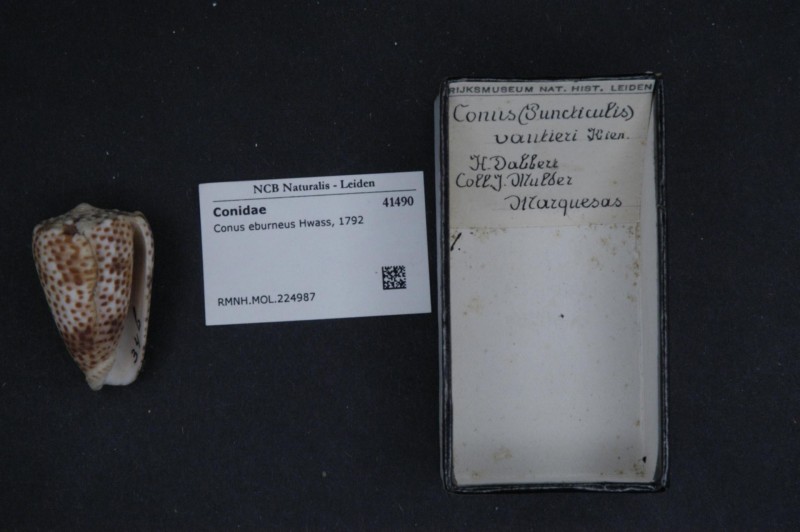 NCB Naturalis - Leiden
Conidae 41490
Conus eburneus Hwass, 1792
RMNH.MOL.224987
RIJKSMUSEUM NAT. HIST. LEIDEN
Conus (Puncticulis)
vautieri Kien.
H. Dabbert
Coll. J. Mulder
Marquesas
1.